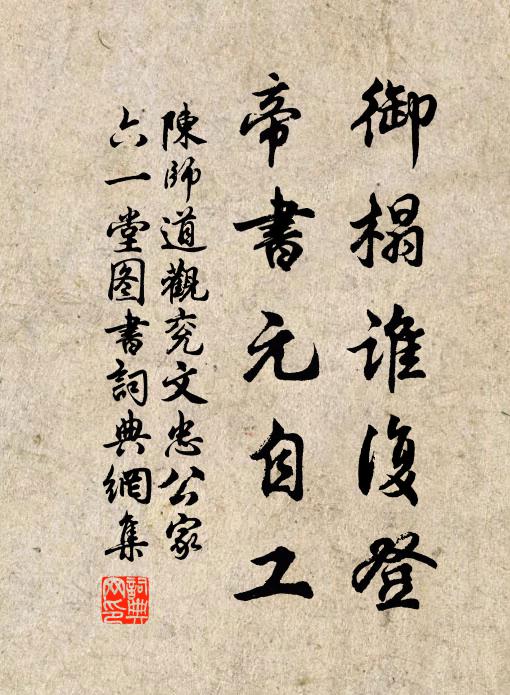 御榻誰復登
帝書元自工
陳師道觀兖文忠公家
六一堂图書詞典網集
詞典网印